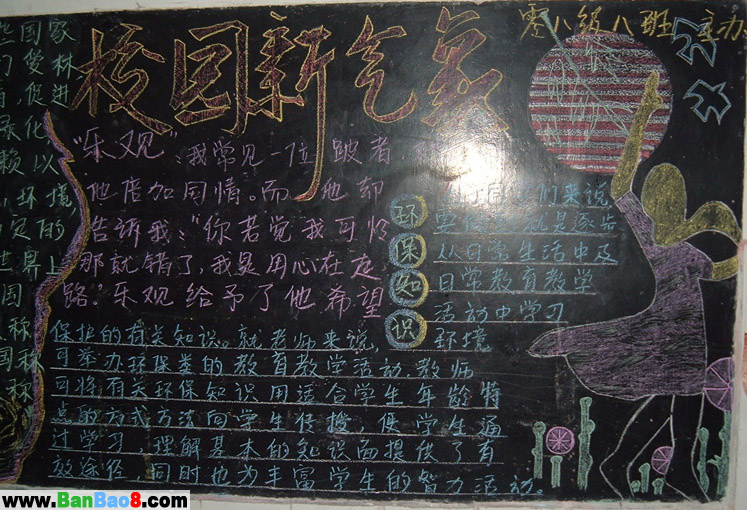 校园新气象
零八级八班 主办
些国家
们受林
促进
绿化
赖以
环境
定的
世界上
国
称
国称
称
"乐观":我常见一位跛者,
他倍加同情。而他却
告诉我:"你若觉我可怜
那就错了,我是用心在走
路."乐观给予了他希望
环保知识
同学们来说
就是逐步
从日常生活中及
日常教育教学
活动中学习
环境
保护的有关知识。就老师来说,
可举办环保类的教育教学活动教师
可将有关环保知识用适合学生年龄特
点的方式方法向学生传授,使学生通
过学习 理解基本的知识面提供了有
效途径 同时也为丰富学生的智力活动。
www.BanBao8.com